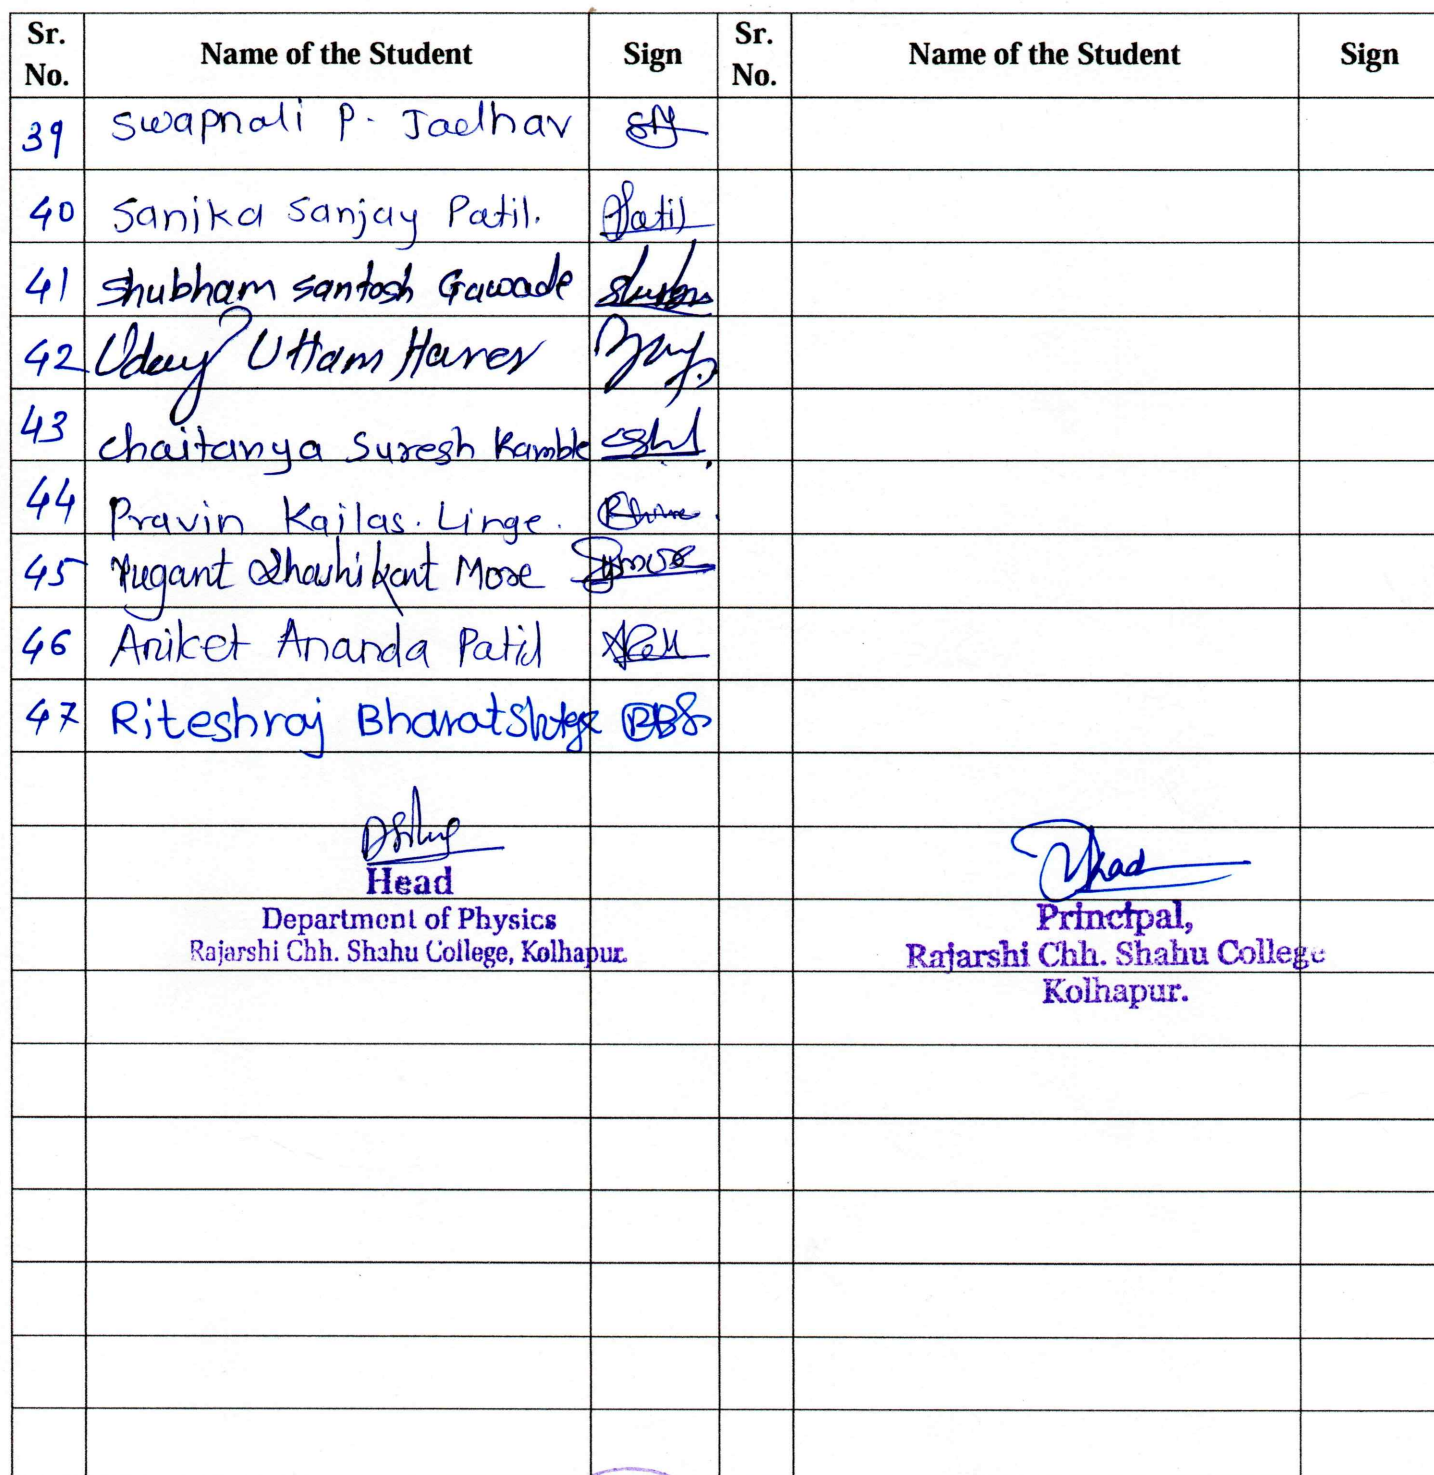 Sr. No. Name of the Student Sign Sr. No. Name of the Student Sign
39 Swapnali P. Jadhav
40 Sanika Sanjay Patil. Patil
41 Shubham Santosh Gawade
42 Uday Uttam Haner
43 Chaitanya Suresh Kamble
44 Pravin Kailas. Linge.
45 Yugant Shashikant More
46 Aniket Ananda Patil
47 Riteshraj Bharat RBS
Head
Department of Physics
Rajarshi Chh. Shahu College, Kolhapur.
Principal,
Rajarshi Chh. Shahu College
Kolhapur.